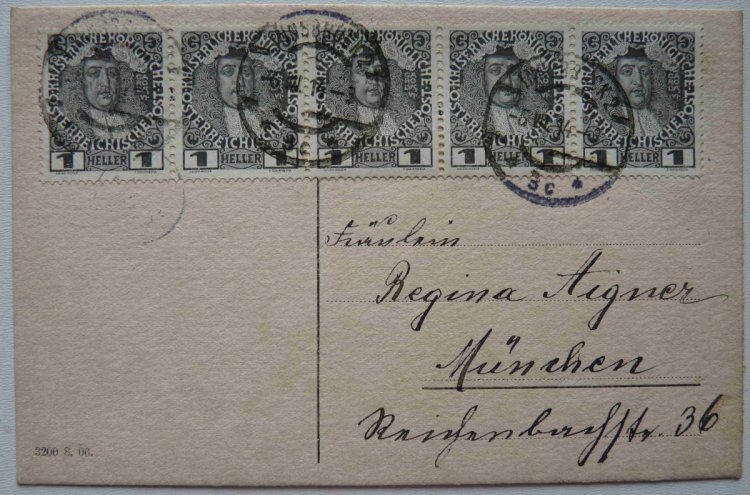 1 HELLER 1
1 HELLER 1
1 HELLER 1
1 HELLER 1
1 HELLER 1
3c *
Fräulein
Regina Aigner
München
Reichenbachstr. 36
3200 S. 06.